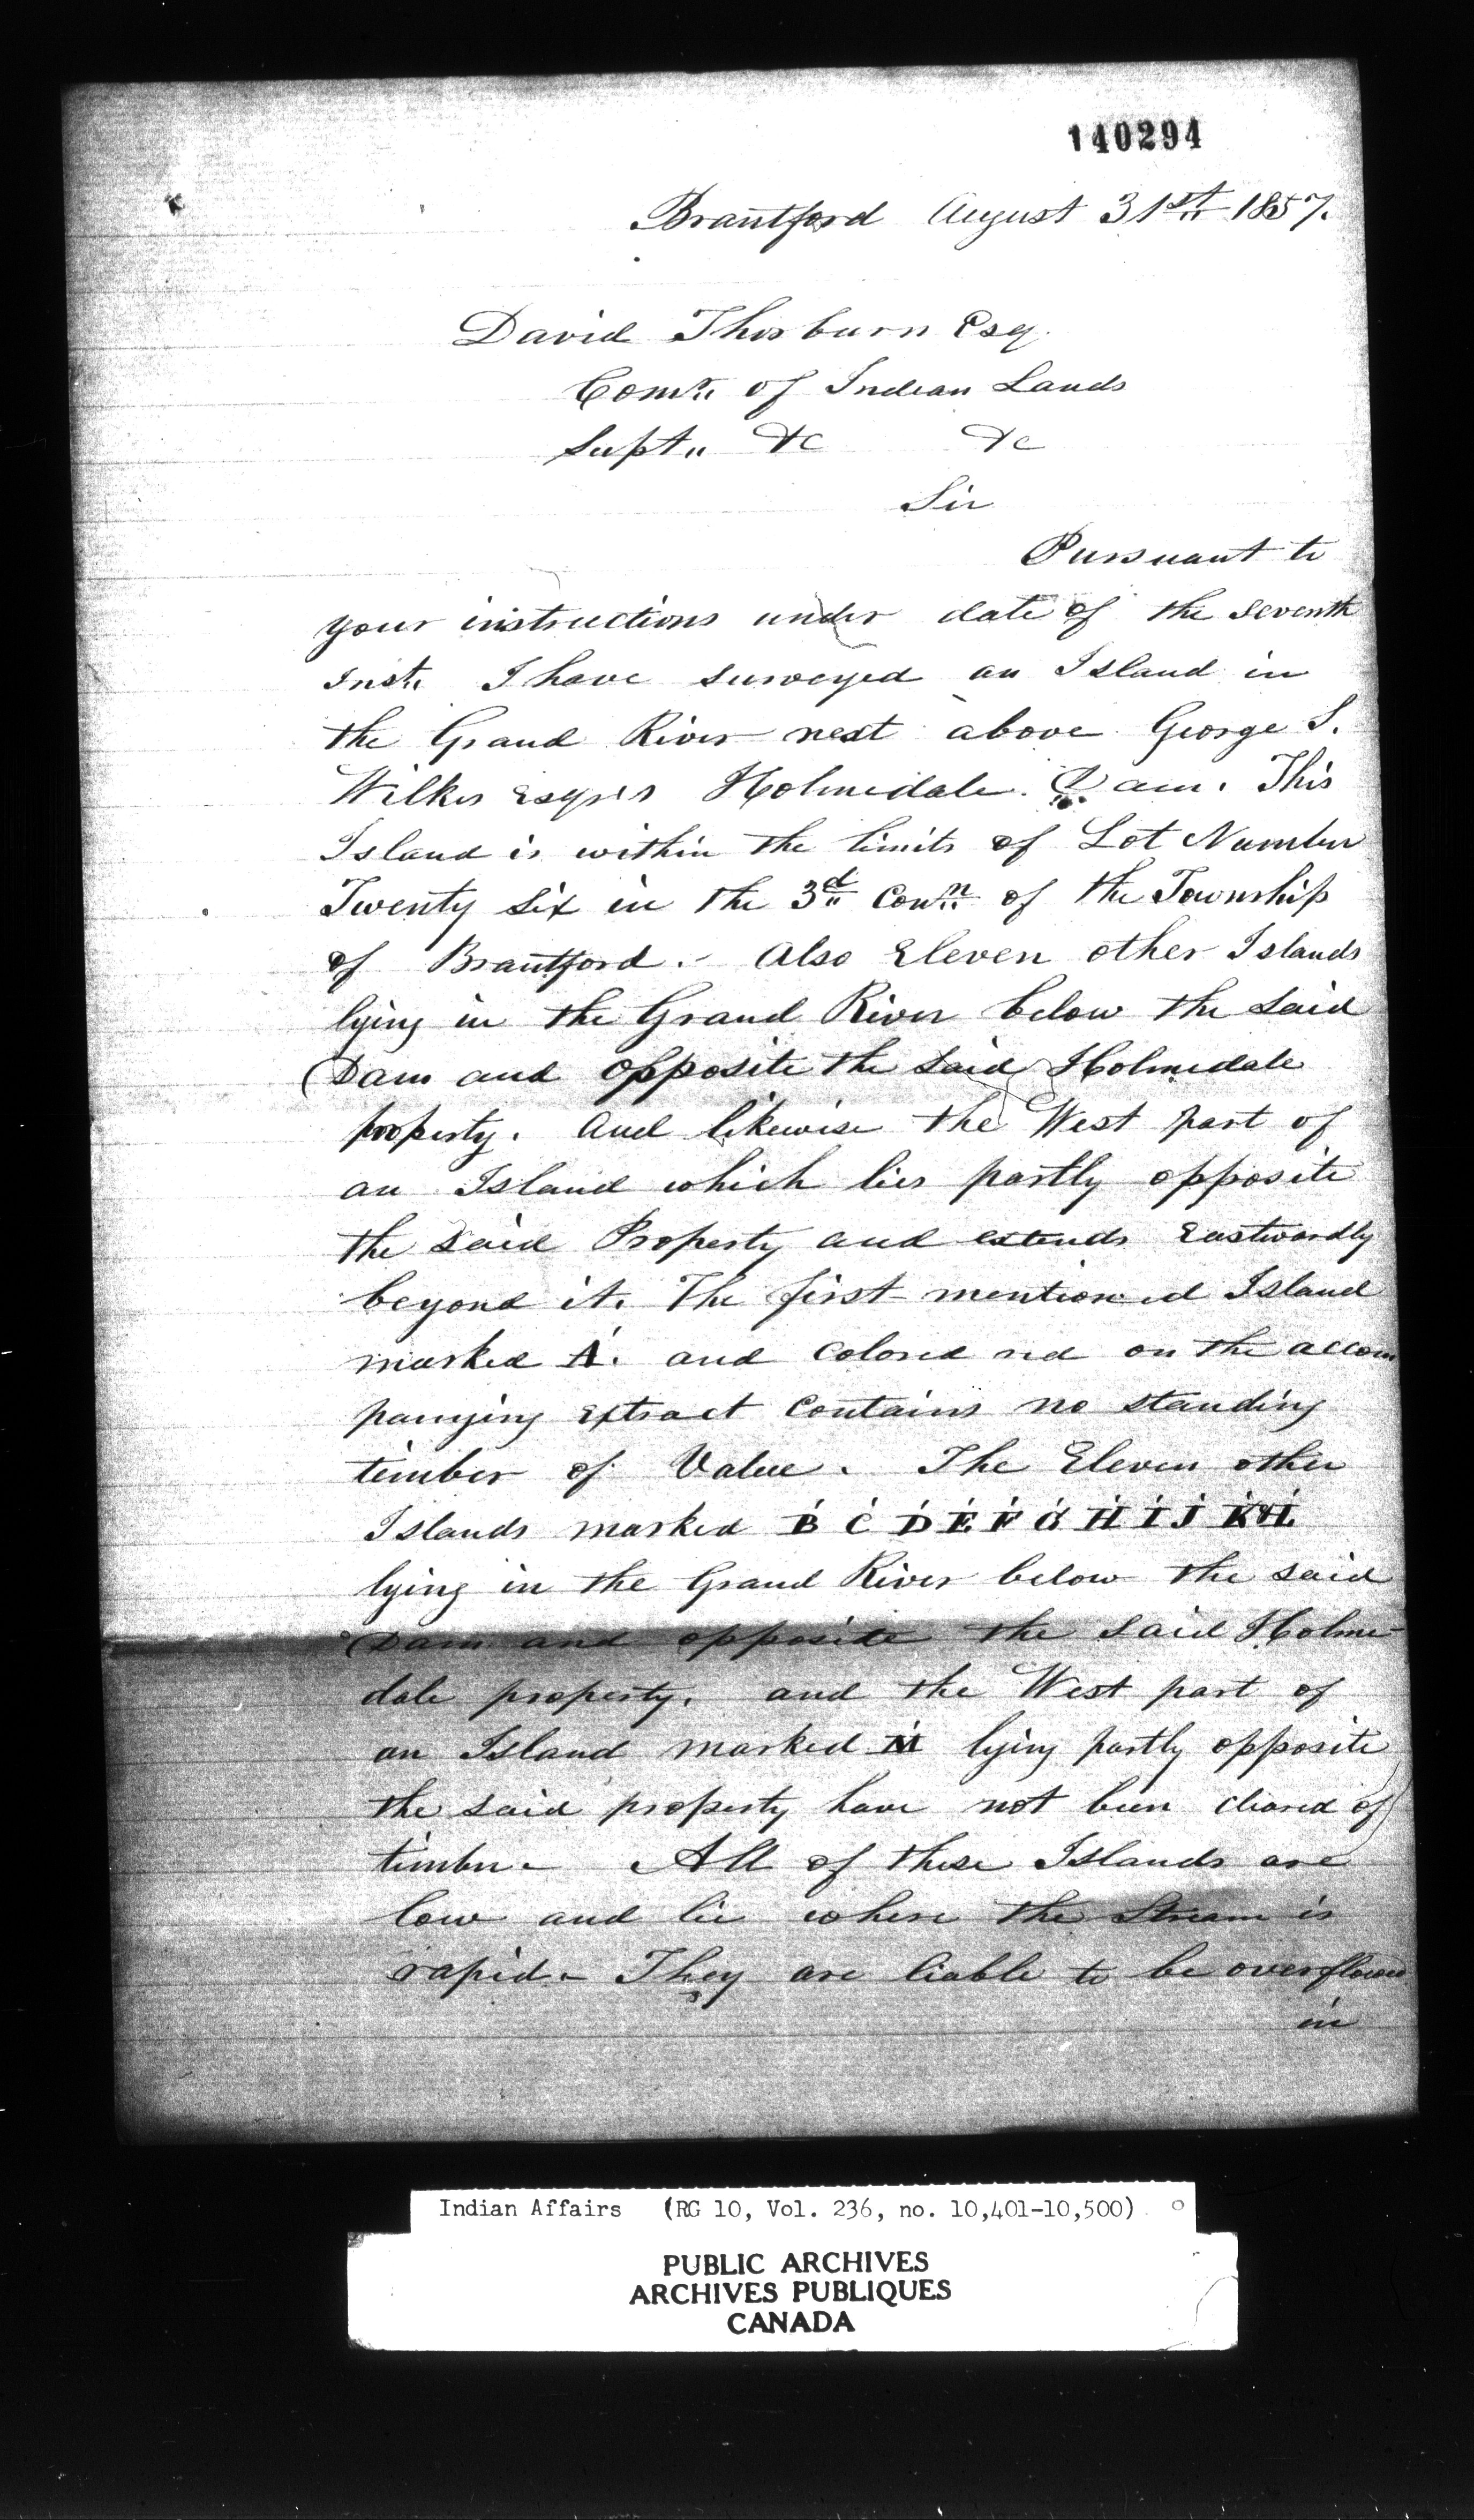 140294
Brantford August 31st 1857.
David Thorburn Esq.
Comr. of Indian Lands
Supt. &c &c
Sir
Pursuant to
your instructions under date of the seventh
Inst. I have surveyed an Island in
the Grand River next above George S.
Wilkes Esqr's Holmedale Dam. This
Island is within the limits of Lot Number
Twenty Six in the 3d Conn. of the Township
of Brantford. - Also Eleven other Islands
lying in the Grand River below the said
Dam and opposite the said Holmedale
property. And likewise the West part of
an Island which lies partly opposite
the said Property and extends Eastwardly
beyond it. The first mentioned Island
marked A. and colored red on the accom
panying Extract contains no standing
timber of Value. The Eleven other
Islands marked B C D E F G H I J K & L
lying in the Grand River below the said
Dam and opposite the said Holme-
dale property. and the West part of
an Island marked M lying partly opposite
the said property have not been cleared of
timber - All of these Islands are
low and lie where the Stream is
rapid. - They are liable to be overflowed
in
Indian Affairs (RG 10, Vol. 236, no. 10,401-10,500)
PUBLIC ARCHIVES
ARCHIVES PUBLIQUES
CANADA